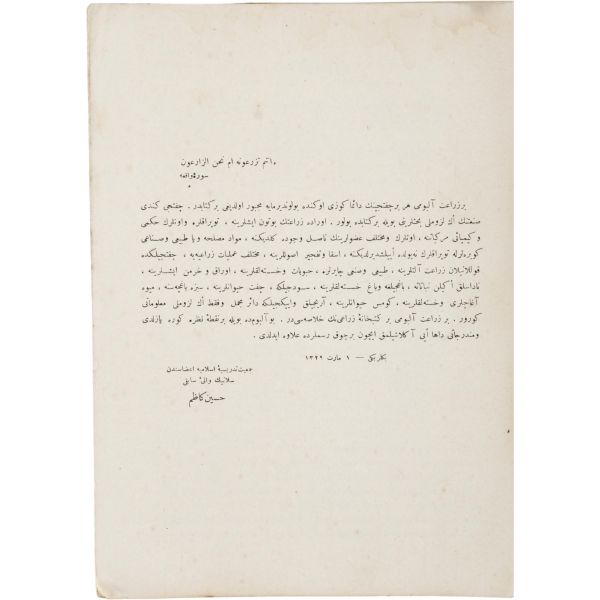 ءانتم تزرعونه ام نحن الزارعون
سورهٔ واقعه
بر زراعت آلبومی هر چفتجینك دائما كوزی اوكنده بولوندیرمایه مجبور اولدیغی بر كتابدر . چفتجی كندی
صنعتنك اك لزوملی بحثلرینی بویله بر كتابده بولور . اوراده زراعتك بوتون ایشلرینه ، توپراقلره واونلرك حكمی
وكیمیائی مركباتنه ، اونلرك ومختلف عضولرینك ناصل وجوده كلدیكنه ، مواد مصلحه ویا طبیعی وصناعی
كوبره لرله توپراقلرك نه یولده اییلشدیرلدیكنه ، اسقا وتفجیر اصوللرینه ، مختلف عملیات زراعیه یه ، چفتجیلكده
قوللانیلان زراعت آلتلرینه ، طبیعی وصنعی چایرلره ، حبوبات وخسته لقلرینه ، اوراق و خرمن ایشلرینه ،
ناداسلق اكیلن نباتاته ، باغجیلغه وباغ خسته لقلرینه ، سودجیلكه ، چفت حیوانلرینه ، سبزه باغچه سنه ، میوه
آغاجلری وخسته لقلرینه ، كومس حیوانلرینه ، آریجیلق وایپكجیلكه دائر مجمل وفقط اك لزوملی معلوماتی
كورور . بر زراعت آلبومی بر كتبخانهٔ زراعی نك خلاصه سی در . بو آلبومده بویله بر نقطهٔ نظره كوره یازلدی
ومندرجاتی داها ایی آكلاشیلمق ایچون برچوق رسملرده علاوه ایدلدی .
بكلربكی — ١ مارت ١٣٢٩
جمعیت تدریسیهٔ اسلامیه اعضاسندن
سلانیك والیٔ سابقی
حسین كاظم